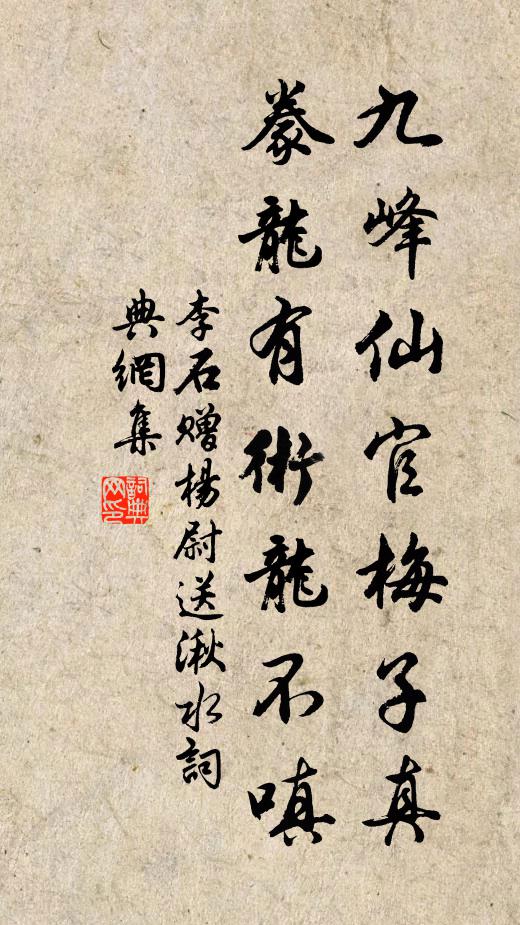 九峰仙官梅子真
豢龍有術龍不嗔
李石贈楊尉送湫水詞
典網集
詞典网印